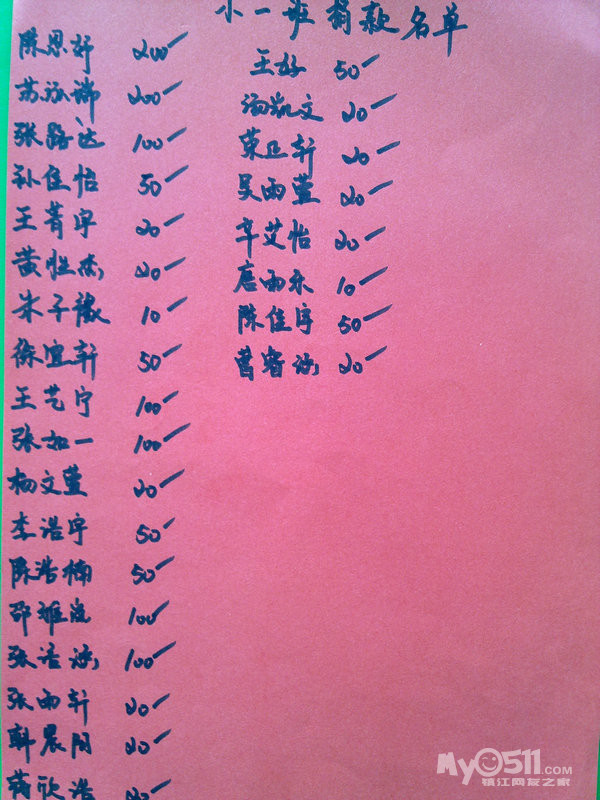 小一班捐款名单
陈思妤 200
苏泓瑞 200
张路达 100
孙佳怡 50
王菁宇 20
黄恺杰 20
朱子薇 10
徐宜轩 50
王艺宁 100
张如一 100
杨文萱 20
李浩宇 50
陈浩楠 50
邵雅岚 100
张语涵 100
张雨轩 20
韩晨阳 20
蒋欣浩 20
王好 50
汤凯文 20
荣正轩 20
吴雨萱 20
辛艾怡 20
唐雨禾 10
陈佳宇 50
曹睿涵 20
My0511.COM
镇江网友之家